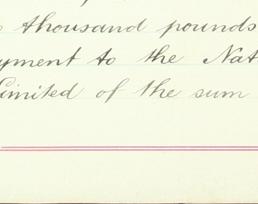 thousand pounds
yment to the Nat
Limited of the sum